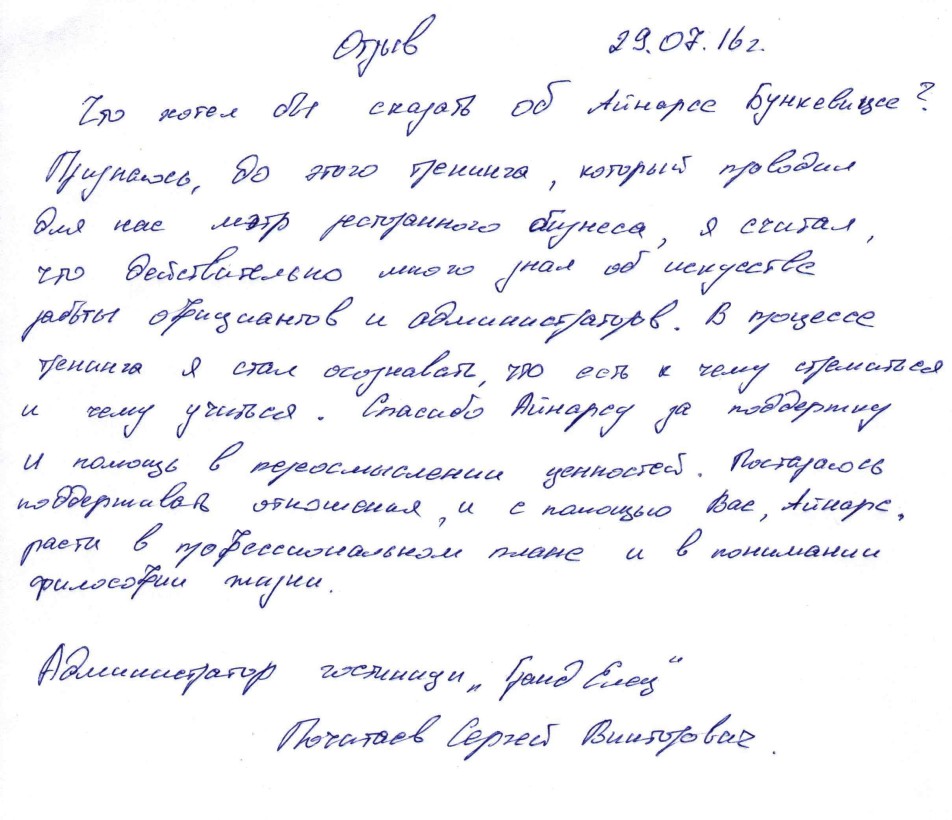 Отзыв 29.07.16г.
Что хотел бы сказать об Айнарсе Бункевицсе?
Признаюсь, до этого тренинга, который проводил
для нас мэтр ресторанного бизнеса, я считал,
что действительно много знал об искусстве
работы официантов и администраторов. В процессе
тренинга я стал осознавать, что есть к чему стремиться
и чему учиться. Спасибо Айнарсу за поддержку
и помощь в переосмыслении ценностей. Постараюсь
поддерживать отношения, и с помощью Вас, Айнарс,
расти в профессиональном плане и в понимании
философии жизни.
Администратор гостиницы „Гранд Елец"
Сергей Викторович.